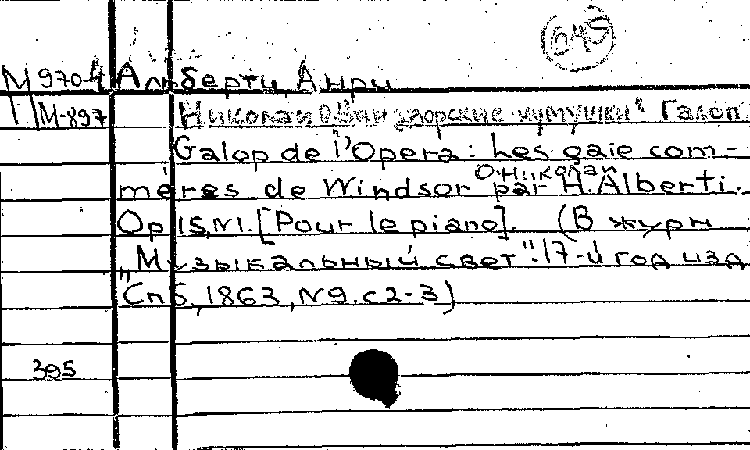 645
М970-4 Альберти, Анри
М-897 Николаи О. Виндзорские кумушки" Галоп
Galop de l'Opera: Les gaie com-
О. Николаи
méres de Windsor par H. Alberti.
Op 15, N1. [Pour le piano]. (В журн
"Музыкальный свет". 17-й год изд
Спб, 1863, N9. с 2-3)
395